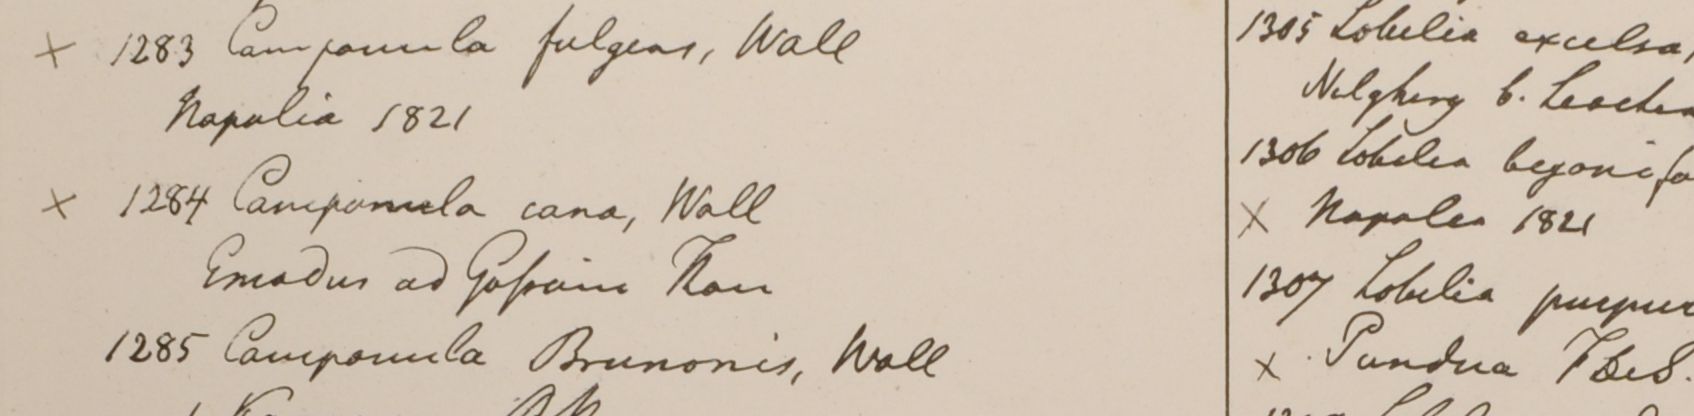 × 1283 Campanula fulgens, Wall
Napalia 1821
× 1284 Campanula cana, Wall
Emodus ad Gossain Than
1285 Campanula Brunonis, Wall
1305 Lobelia excelsa,
Nilghery b. Leschen
1306 Lobelia begonifo
× Napalia 1821
1307 Lobelia purpur
× Pundua F.DeS.